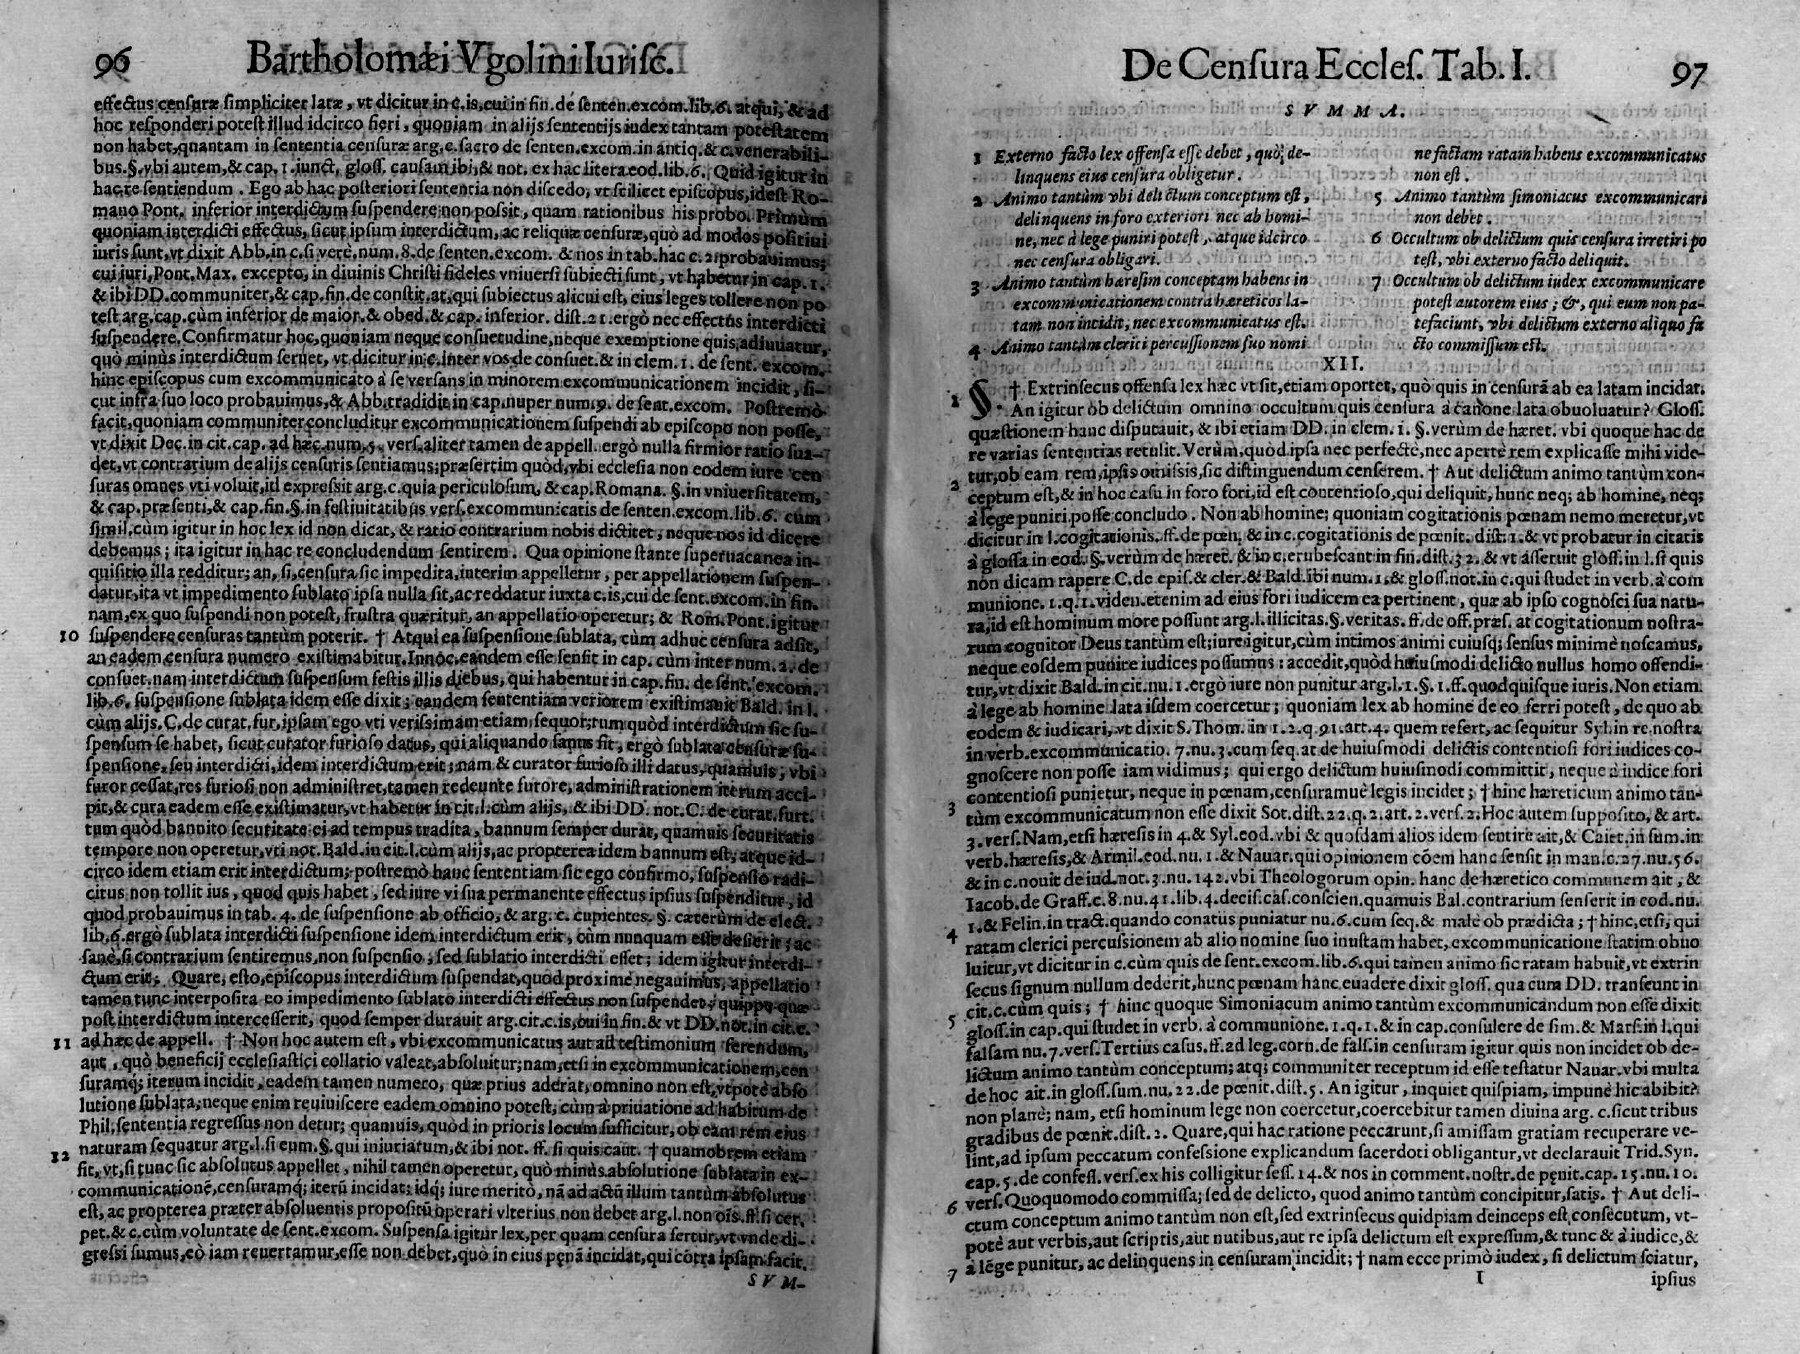 96 Bartholomæi Vgolini Iurisc.
effectus censuræ simpliciter latæ, vt dicitur in c. is, cui in fin. de senten. excom. lib. 6. atqui, & ad
hoc responderi potest illud idcirco fieri, quoniam in alijs sententijs iudex tantam potestatem
non habet, quantam in sententia censuræ arg. c. sacro de senten. excom. in antiq. & c. venerabili-
bus. §. vbi autem, & cap. 1. iunct. gloss. causam ibi, & not. ex hac litera eod. lib. 6. Quid igitur in
hac re sentiendum. Ego ab hac posteriori sententia non discedo, vt scilicet episcopus, idest Ro-
mano Pont. inferior interdictum suspendere non possit, quam rationibus his probo. Primùm
quoniam interdicti effectus, sicut ipsum interdictum, ac reliquæ censuræ, quò ad modos positiui
iuris sunt, vt dixit Abb. in c. si vere, num. 8. de senten. excom. & nos in tab. hac c. 2. probauimus;
cui iuri, Pont. Max. excepto, in diuinis Christi fideles vniuersi subiecti sunt, vt habetur in cap. 1.
& ibi DD. communiter, & cap. fin. de constit. at, qui subiectus alicui est, eius leges tollere non po
test arg. cap. cùm inferior de maior. & obed. & cap. inferior. dist. 21. ergò nec effectus interdicti
suspendere. Confirmatur hoc, quoniam neque consuetudine, neque exemptione quis, adiuuatur,
quò minùs interdictum seruet, vt dicitur in c. inter vos de consuet. & in clem. 1. de sent. excom.
hinc episcopus cum excommunicato à se versans in minorem excommunicationem incidit, si-
cut infra suo loco probauimus, & Abb. tradidit in cap. nuper num. 9. de sent. excom. Postremò
facit, quoniam communiter concluditur excommunicationem suspendi ab episcopo non posse,
vt dixit Dec. in cit. cap. ad hæc. num. 5. vers. aliter tamen de appell. ergò nulla firmior ratio sua-
det, vt contrarium de alijs censuris sentiamus; præsertim quòd, vbi ecclesia non eodem iure cen
suras omnes vti voluit, id expressit arg. c. quia periculosum, & cap. Romana. §. in vniuersitatem,
& cap. præsenti, & cap. fin. §. in festiuitatibus vers. excommunicatis de senten. excom. lib. 6. cùm
simil, cùm igitur in hoc lex id non dicat, & ratio contrarium nobis dictitet, neque nos id dicere
debemus; ita igitur in hac re concludendum sentirem. Qua opinione stante superuacanea in-
quisitio illa redditur; an, si, censura sic impedita, interim appelletur, per appellationem suspen-
datur, ita vt impedimento sublato ipsa nulla sit, ac reddatur iuxta c. is, cui de sent. excom. in fin.
nam, ex quo suspendi non potest, frustra quæritur, an appellatio operetur; & Rom. Pont. igitur
10 suspendere censuras tantùm poterit. † Atqui ea suspensione sublata, cùm adhuc censura adsit,
an eadem censura numero existimabitur. Innoc. eandem esse sensit in cap. cùm inter num. 2. de
consuet. nam interdictum suspensum festis illis diebus, qui habentur in cap. fin. de sent. excom.
lib. 6. suspensione sublata idem esse dixit; eandem sententiam veriorem existimauit Bald. in l.
cùm alijs. C. de curat. fur. ipsam ego vti verissimam etiam sequor, tum quòd interdictum sic su-
spensum se habet, sicut curator furioso datus, qui aliquando sanus sit, ergò sublata censuræ su-
spensione, seu interdicti, idem interdictum erit; nam & curator furioso illi datus, quamuis, vbi
furor cessat, res furiosi non administret, tamen redeunte furore, administrationem iterum acci-
pit, & cura eadem esse existimatur, vt habetur in cit. l. cùm alijs, & ibi DD. not. C. de curat. furt.
tum quòd bannito securitate ei ad tempus tradita, bannum semper durat, quamuis securitatis
tempore non operetur, vti not. Bald. in cit. l. cùm alijs, ac propterea idem bannum est, atque id-
circo idem etiam erit interdictum; postremò hanc sententiam sic ego confirmo, suspensio radi-
citus non tollit ius, quod quis habet, sed iure vi sua permanente effectus ipsius suspenditur, id
quod probauimus in tab. 4. de suspensione ab officio, & arg. c. cupientes. §. cæterùm de elect.
lib. 6. ergò sublata interdicti suspensione idem interdictum erit, cùm nunquam esse desierit; ac
sanè, si contrarium sentiremus, non suspensio, sed sublatio interdicti esset; idem igitur interdi-
ctum erit; Quare, esto, episcopus interdictum suspendat, quod proximè negauimus, appellatio
tamen tunc interposita eo impedimento sublato interdicti effectus non suspendet, quippe quæ
post interdictum intercesserit, quod semper durauit arg. cit. c. is, cui in fin. & vt DD. not. in cit. c.
11 ad hæc de appell. † Non hoc autem est, vbi excommunicatus aut ad testimonium ferendum,
aut, quò beneficij ecclesiastici collatio valeat, absoluitur; nam, etsi in excommunicationem, cen
suramq; iterum incidit, eadem tamen numero, quæ prius aderat, omnino non est, vtpotè abso
lutione sublata; neque enim reuiuiscere eadem omnino potest, cùm à priuatione ad habitum de
Phil. sententia regressus non detur; quamuis, quòd in prioris locum sufficitur, ob eam rem eius
naturam sequatur arg. l. si eum. §. qui iniuriatum, & ibi not. ff. si quis caut. † quamobrem etiam
12 fit, vt, si tunc sic absolutus appellet, nihil tamen operetur, quò minùs absolutione sublata in ex-
communicationē, censuramq; iterū incidat; idq; iure meritò, nā ad actū illum tantùm absolutus
est, ac propterea præter absoluentis propositū operari vlterius non debet arg. l. non oīs. ff. si cer.
pet. & c. cùm voluntate de sent. excom. Suspensa igitur lex, per quam censura fertur, vt vnde di-
gressi sumus, eò iam reuertamur, esse non debet, quò in eius pęnā incidat, qui cōtra ipsam facit.
SVM-
De Censura Eccles. Tab. I. 97
SVMMA.
1 Externo facto lex offensa esse debet, quò; de-
linquens eius censura obligetur.
2 Animo tantùm vbi delictum conceptum est,
delinquens in foro exteriori nec ab homi-
ne, nec à lege puniri potest, atque idcirco
nec censura obligari.
3 Animo tantùm hæresim conceptam habens in
excommunicationem contra hæreticos la-
tam non incidit, nec excommunicatus est.
4 Animo tantùm clerici percussionem suo nomi
ne factam ratam habens excommunicatus
non est.
5 Animo tantùm simoniacus excommunicari
non debet.
6 Occultum ob delictum quis censura irretiri po
test, vbi externo facto deliquit.
7 Occultum ob delictum iudex excommunicare
potest autorem eius; &, qui eum non pa-
tefaciunt, vbi delictum externo aliquo fa
cto commissum est.
XII.
1 § † Extrinsecus offensa lex hæc vt sit, etiam oportet, quò quis in censurā ab ea latam incidat.
An igitur ob delictum omnino occultum quis censura à canone lata obuoluatur? Gloss.
quæstionem hanc disputauit, & ibi etiam DD. in clem. 1. §. verùm de hæret. vbi quoque hac de
re varias sententias retulit. Verùm, quod ipsa nec perfectè, nec apertè rem explicasse mihi vide-
tur, ob eam rem, ipsis omissis, sic distinguendum censerem. † Aut delictum animo tantùm con-
2 ceptum est, & in hoc casu in foro fori, id est contentioso, qui deliquit, hunc neq; ab homine, neq;
à lege puniri posse concludo. Non ab homine; quoniam cogitationis pœnam nemo meretur, vt
dicitur in l. cogitationis. ff. de pœn. & in c. cogitationis de pœnit. dist. 1. & vt probatur in citatis
à glossa in eod. §. verùm de hæret. & in c. erubescant in fin. dist. 32. & vt asseruit gloss. in l. si quis
non dicam rapere C. de epis. & cler. & Bald. ibi num. 1. & gloss. not. in c. qui studet in verb. à com
munione. 1. q. 1. viden. etenim ad eius fori iudicem ea pertinent, quæ ab ipso cognosci sua natu-
ra, id est hominum more possunt arg. l. illicitas. §. veritas. ff. de off. præs. at cogitationum nostra-
rum cognitor Deus tantùm est; iure igitur, cùm intimos animi cuiusq; sensus minimè noscamus,
neque eosdem punire iudices possumus: accedit, quòd huiusmodi delicto nullus homo offendi-
tur, vt dixit Bald. in cit. nu. 1. ergò iure non punitur arg. l. 1. §. 1. ff. quod quisque iuris. Non etiam.
à lege ab homine lata isdem coercetur; quoniam lex ab homine de eo ferri potest, de quo ab
eodem & iudicari, vt dixit S. Thom. in 1. 2. q. 91. art. 4. quem refert, ac sequitur Syl. in re nostra
in verb. excommunicatio. 7. nu. 3. cum seq. at de huiusmodi delictis contentiosi fori iudices co-
gnoscere non posse iam vidimus; qui ergo delictum huiusmodi committit, neque à iudice fori
contentiosi punietur, neque in pœnam, censuramuè legis incidet; † hinc hæreticum animo tan-
3 tùm excommunicatum non esse dixit Sot. dist. 22. q. 2. art. 2. vers. 2. Hoc autem supposito, & art.
3. vers. Nam, etsi hæresis in 4. & Syl. eod. vbi & quosdam alios idem sentire ait, & Caiet. in sum. in
verb. hæresis, & Armil. eod. nu. 1. & Nauar. qui opinionem cōem hanc sensit in man. c. 27. nu. 56.
& in c. nouit de iud. not. 3. nu. 142. vbi Theologorum opin. hanc de hæretico communem ait, &
Iacob. de Graff. c. 8. nu. 41. lib. 4. decis. cas. conscien. quamuis Bal. contrarium senserit in eod. nu.
1. & Felin. in tract. quando conatus puniatur nu. 6. cum seq. & malè ob prædicta; † hinc, etsi, qui
4 ratam clerici percussionem ab alio nomine suo inustam habet, excommunicatione statim obuo
luitur, vt dicitur in c. cùm quis de sent. excom. lib. 6. qui tamen animo sic ratam habuit, vt extrin
secus signum nullum dederit, hunc pœnam hanc euadere dixit gloss. qua cum DD. transeunt in
cit. c. cùm quis; † hinc quoque Simoniacum animo tantùm excommunicandum non esse dixit
5 gloss. in cap. qui studet in verb. à communione. 1. q. 1. & in cap. consulere de sim. & Mars. in l. qui
falsam nu. 7. vers. Tertius casus. ff. ad leg. corn. de fals. in censuram igitur quis non incidet ob de-
lictum animo tantùm conceptum; atq; communiter receptum id esse testatur Nauar. vbi multa
de hoc ait. in gloss. sum. nu. 22. de pœnit. dist. 5. An igitur, inquiet quispiam, impunè hic abibit?
non planè; nam, etsi hominum lege non coercetur, coercebitur tamen diuina arg. c. sicut tribus
gradibus de pœnit. dist. 2. Quare, qui hac ratione peccarunt, si amissam gratiam recuperare ve-
lint, ad ipsum peccatum confessione explicandum sacerdoti obligantur, vt declarauit Trid. Syn.
cap. 5. de confess. vers. ex his colligitur sess. 14. & nos in comment. nostr. de pęnit. cap. 15. nu. 10.
vers. Quoquomodo commissa; sed de delicto, quod animo tantùm concipitur, satis. † Aut deli-
6 ctum conceptum animo tantùm non est, sed extrinsecus quidpiam deinceps est consecutum, vt-
potè aut verbis, aut scriptis, aut nutibus, aut re ipsa delictum est expressum, & tunc & à iudice, &
à lege punitur, ac delinquens in censuram incidit; † nam ecce primò iudex, si delictum sciatur,
7
I ipsius